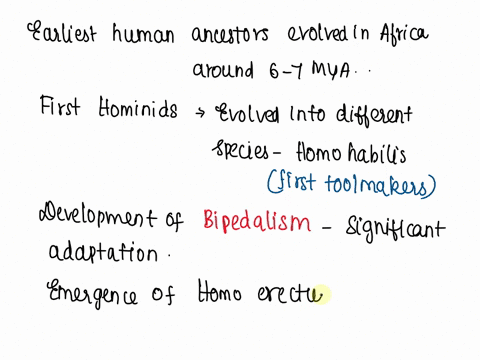 Earliest human ancestors evolved in Africa
around 6-7 MYA..
First Hominids → Evolved into different
species - Homo habilis
(first toolmakers)
Development of Bipedalism - Significant
adaptation.
Emergence of Homo erectu